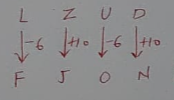 L Z U D
-6 +10 -6 +10
F J O N